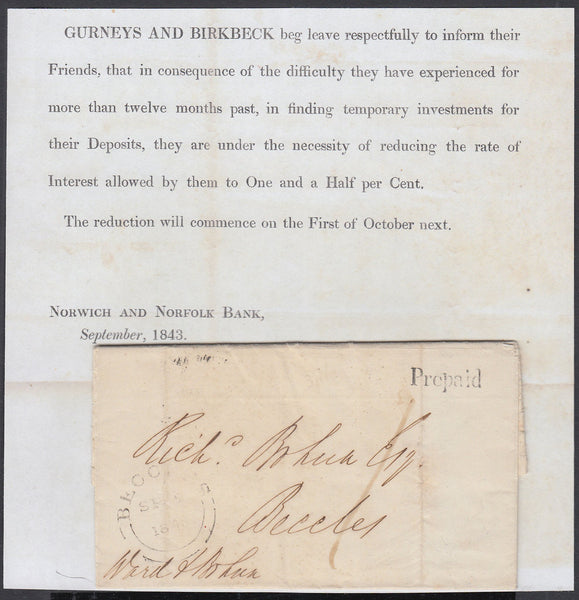 GURNEYS AND BIRKBECK beg leave respectfully to inform their
Friends, that in consequence of the difficulty they have experienced for
more than twelve months past, in finding temporary investments for
their Deposits, they are under the necessity of reducing the rate of
Interest allowed by them to One and a Half per Cent.
The reduction will commence on the First of October next.
NORWICH AND NORFOLK BANK,
September, 1843.
Prepaid
Richd. Bohun Esq.
Beccles
Ward & Bohun